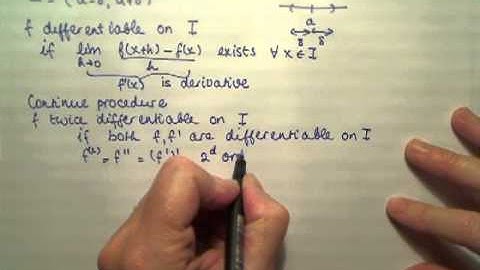 = (a-δ, a+δ)
a
δ δ
f differentiable on I
if lim h→0 f(x+h) - f(x) / h exists ∀ x ∈ I
f'(x) is derivative
Continue procedure
f twice differentiable on I
if both f, f' are differentiable on I
f⁽²⁾ = f'' = (f')' 2ᵈ or